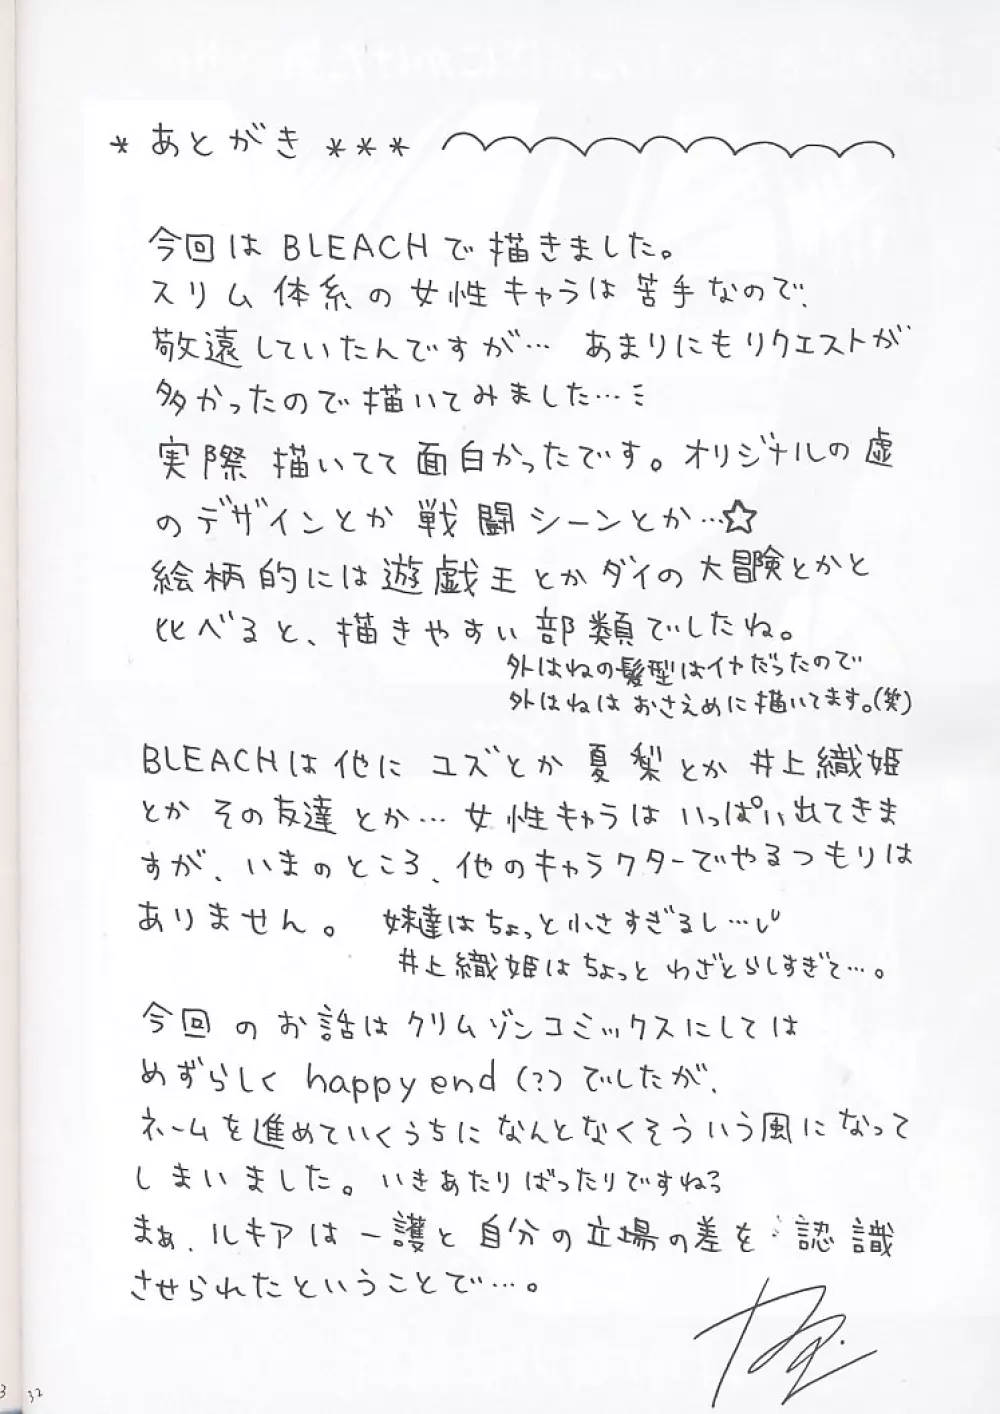 * あとがき ***
今回は BLEACHで描きました。
スリム体系の女性キャラは苦手なので、
敬遠していたんですが… あまりにもリクエストが
多かったので描いてみました…
実際描いてて面白かったです。オリジナルの虚
のデザインとか戦闘シーンとか…☆
絵柄的には遊戯王とかダイの大冒険とかと
比べると、描きやすい部類でしたね。
外はねの髪型はイヤだったので
外はねはおさえめに描いてます。(笑)
BLEACHは他に ユズとか 夏梨とか 井上織姫
とか その友達とか… 女性キャラは いっぱい出てきま
すが、いまのところ、他のキャラクターでやるつもりは
ありません。 妹達はちょっと小さすぎるし…
井上織姫はちょっと わざとらしすぎて…。
今回のお話はクリムゾンコミックスにしては
めずらしく happy end (?)でしたが、
ネームを進めていくうちになんとなくそういう風になって
しまいました。いきあたりばったりですねぇ
まぁ、ルキアは一護と自分の立場の差を 認識
させられたということで…。
3
32